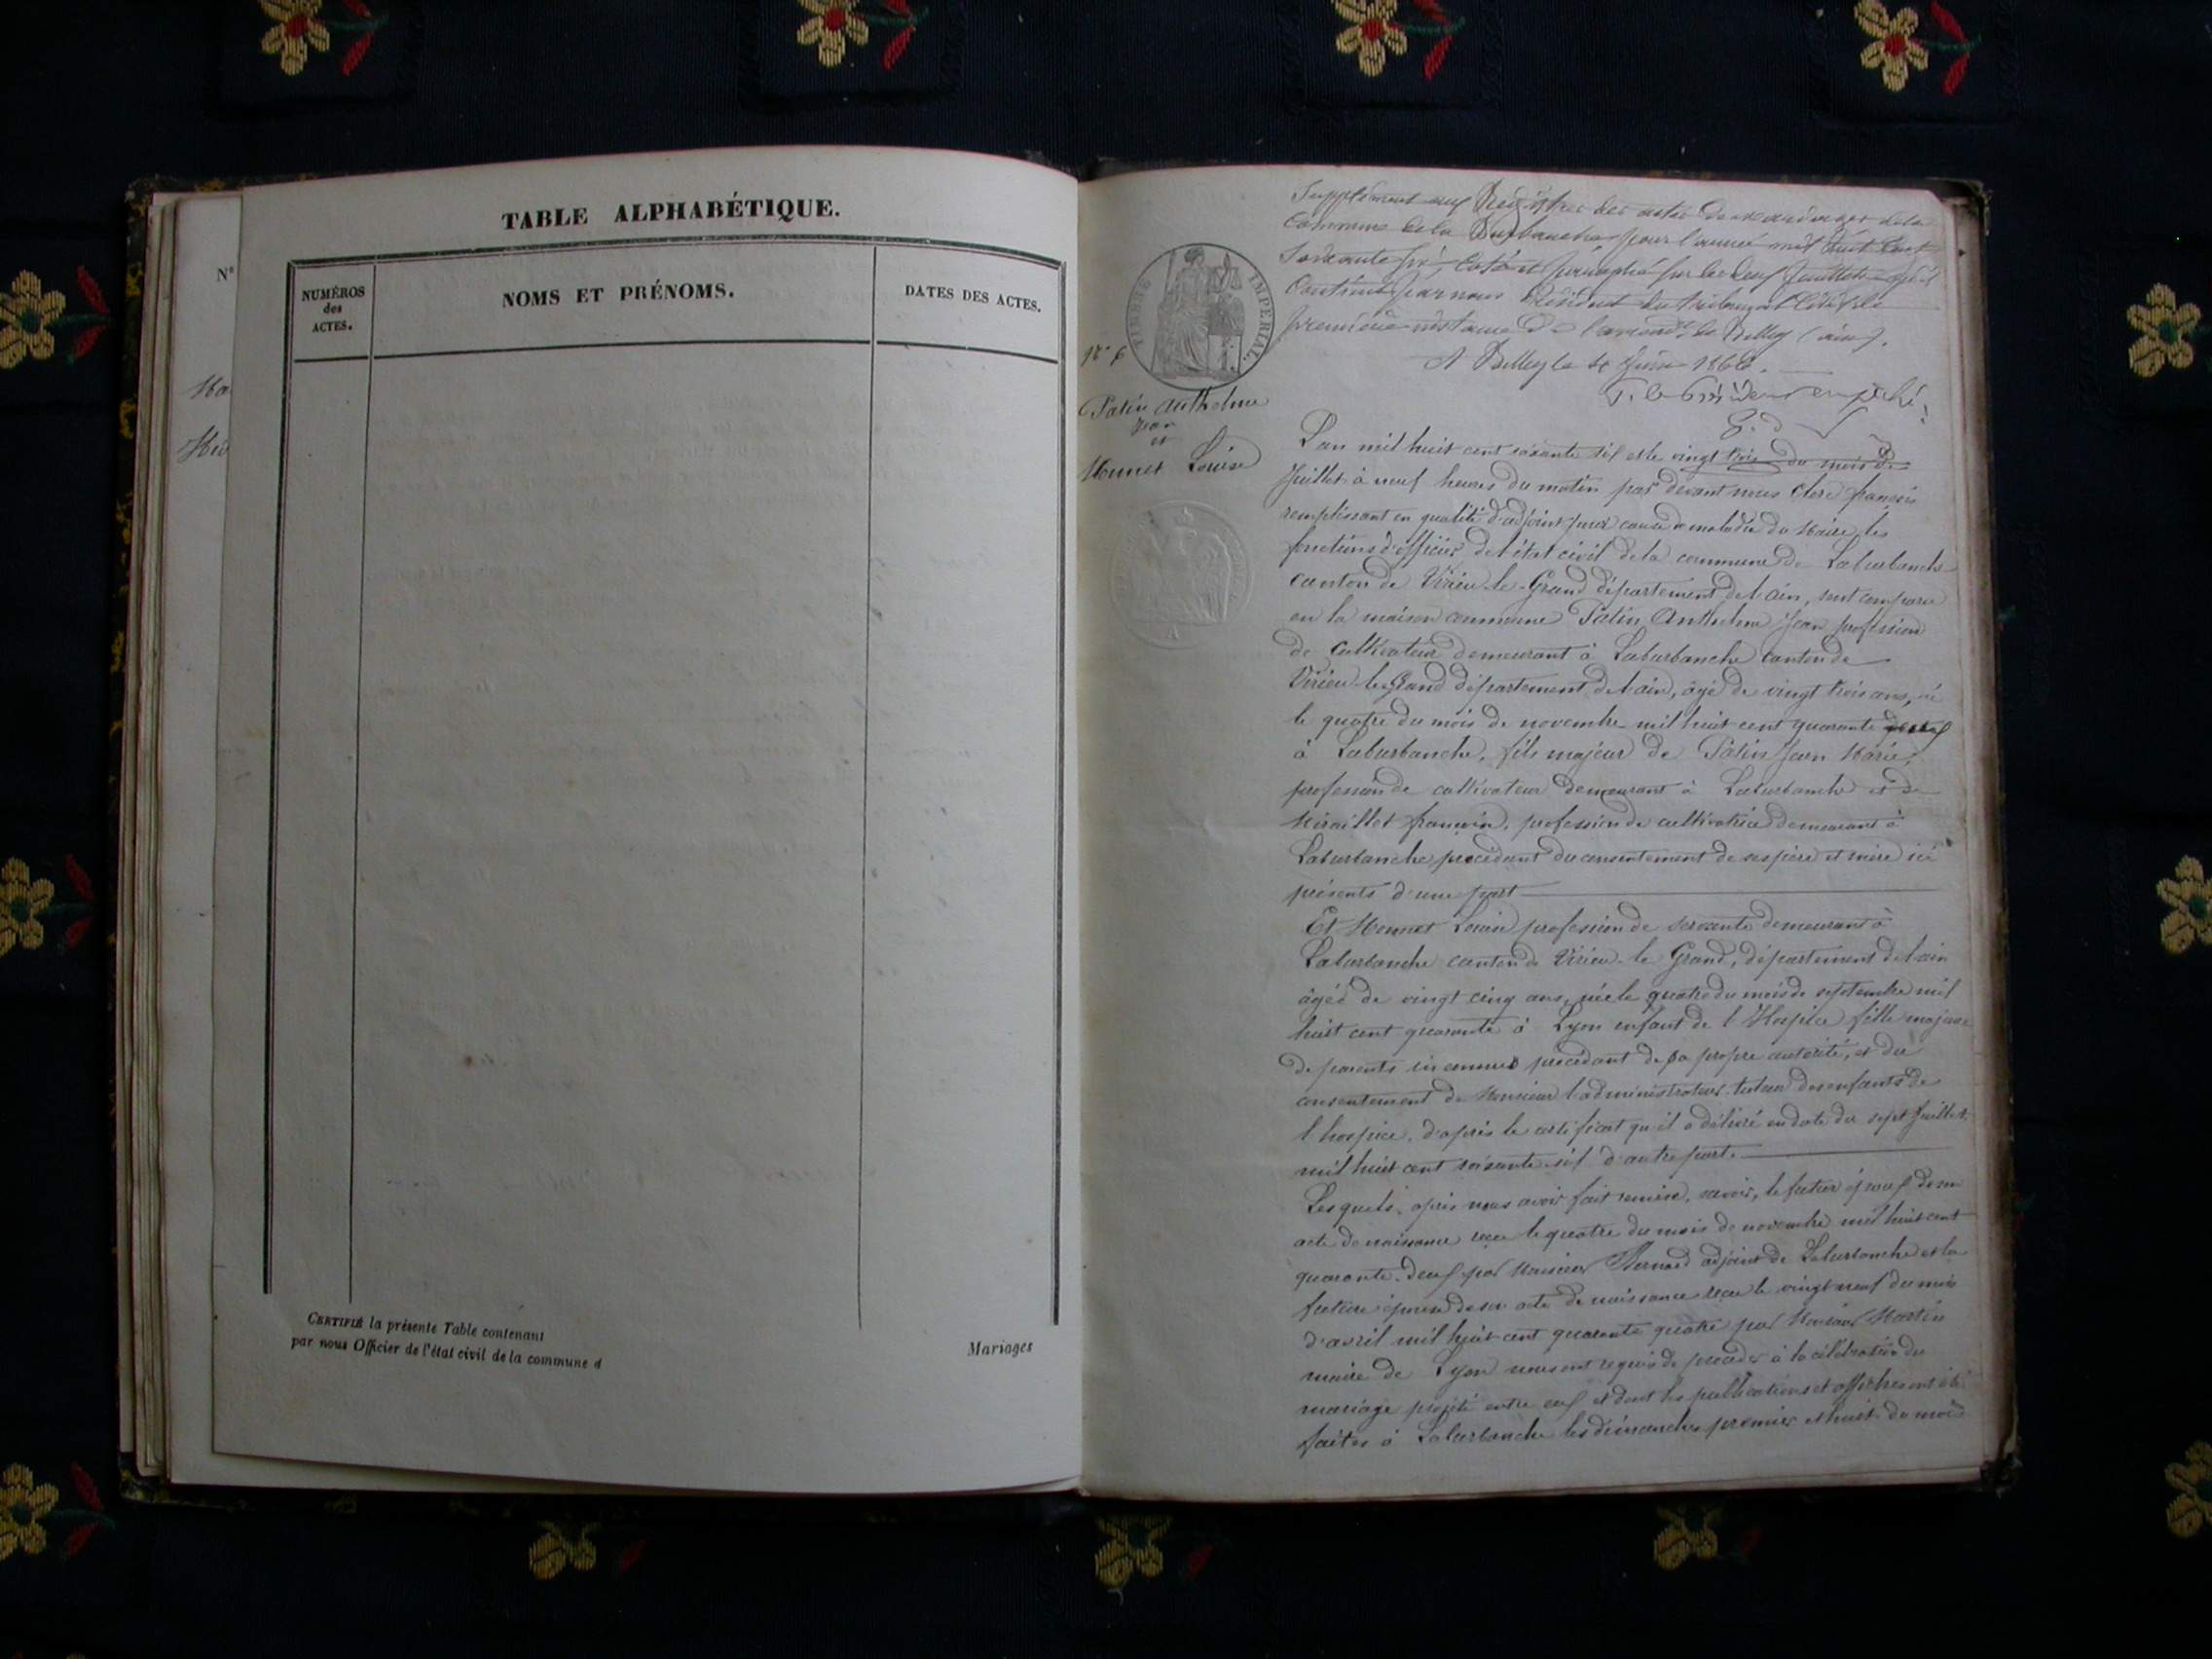 TABLE ALPHABÉTIQUE.
NUMÉROS
des
ACTES.
NOMS ET PRÉNOMS.
DATES DES ACTES.
N°
CERTIFIÉ la présente Table contenant
par nous Officier de l'état civil de la commune d
Mariages
TIMBRE IMPÉRIAL.
N° 6
Patin Anthelme
Jean
et
Monnet Louise
Supplément aux Régistres des actes de mariages de la
commune de la Burbanche pour l'année mil huit cent
soixante six coté et paraphé sur les deux feuillets qu'il
contient par nous Président du tribunal civil de
première instance de l'arrond.t de Belley (ain).
A Belley le 4 Juin 1866.
P. le Président empêché
L'an mil huit cent soixante six et le vingt trois du mois de
Juillet à neuf heures du matin par devant nous Clerc françois
remplissant en qualité d'adjoint pour cause de maladie du Maire, les
fonctions d'officier de l'état civil de la commune de Laburbanche
canton de Virieu-le-Grand département de l'ain, sont comparu
en la maison commune Patin Anthelme Jean profession
de cultivateur demeurant à Laburbanche canton de
Virieu-le-Grand département de l'ain, âgé de vingt trois ans, né
le quatre du mois de novembre mil huit cent quarante deux
à Laburbanche, fils majeur de Patin Jean Marie,
profession de cultivateur demeurant à Laburbanche et de
françoise, profession de cultivatrice demeurant à
Laburbanche procédant du consentement de ses père et mère ici
présents d'une part
Et Monnet Louise profession de servante demeurant à
Laburbanche canton de Virieu-le-Grand, département de l'ain
âgée de vingt cinq ans, née le quatre du mois de septembre mil
huit cent quarante à Lyon enfant de l'Hospice fille majeure
de parents inconnus procédant de sa propre autorité, et du
consentement de Monsieur l'administrateur tuteur des enfants de
l'hospice, d'après le certificat qu'il a délivré en date du sept Juillet
mil huit cent soixante six d'autre part.
Lesquels, après nous avoir fait remise, savoir, le futur époux de son
acte de naissance reçu le quatre du mois de novembre mil huit cent
quarante-deux par Monsieur Bernard adjoint de Laburbanche et la
future épouse de son acte de naissance reçu le vingt neuf du mois
d'avril mil huit cent quarante quatre par Monsieur Martin
maire de Lyon nous ont requis de procéder à la célébration du
mariage projeté entre eux et dont les publications et affiches ont été
faites à Laburbanche les dimanches premier et huit du mois